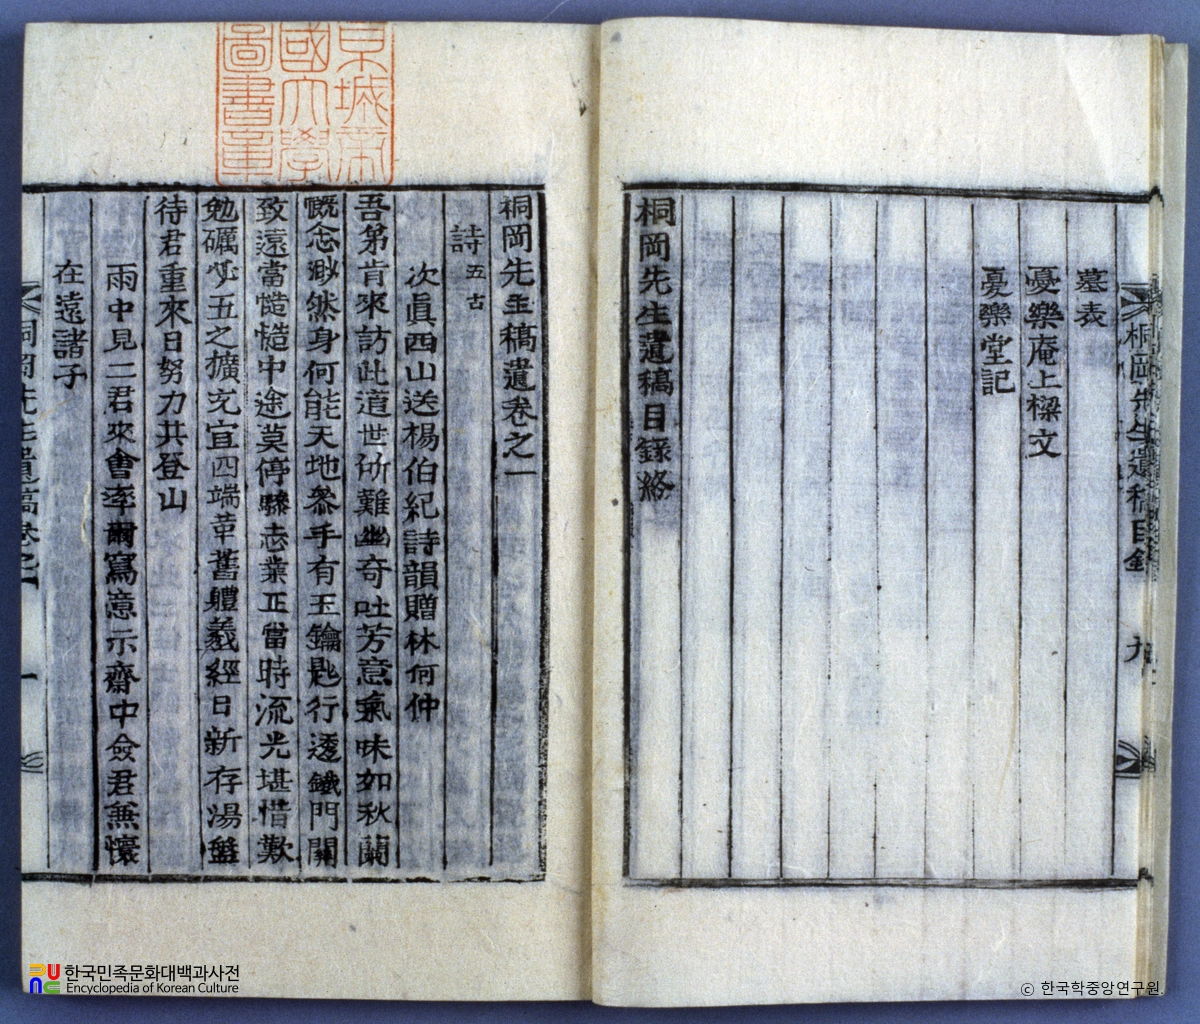 墓表
憂樂庵上樑文
憂樂堂記
桐岡先生遺稿目錄終
桐岡先生遺稿目錄 九
京城帝
國大學
圖書章
桐岡先生稿遺卷之一
詩 五古
次眞西山送楊伯紀詩韻贈林何仲
吾弟肯來訪此道世所難幽奇吐芳意氣味如秋蘭
慨念渺然身何能天地參手有玉鑰匙行透鐵門關
致遠當慥慥中途莫停驂志業正當時流光堪惜歎
勉礪必五之擴充宜四端革舊軆羲經日新存湯盤
待君重來日努力共登山
雨中見二君來會率爾寫意示齋中僉君兼懷
在遠諸子
桐岡先生遺稿卷之一 一
한국민족문화대백과사전
Encyclopedia of Korean Culture
ⓒ 한국학중앙연구원